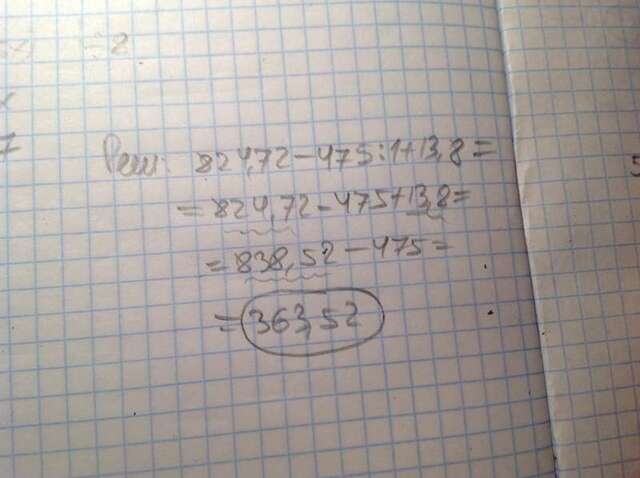 Реш: 824,72-475:1+13,8=
=824,72-475+13,8=
=838,52-475=
=363,52